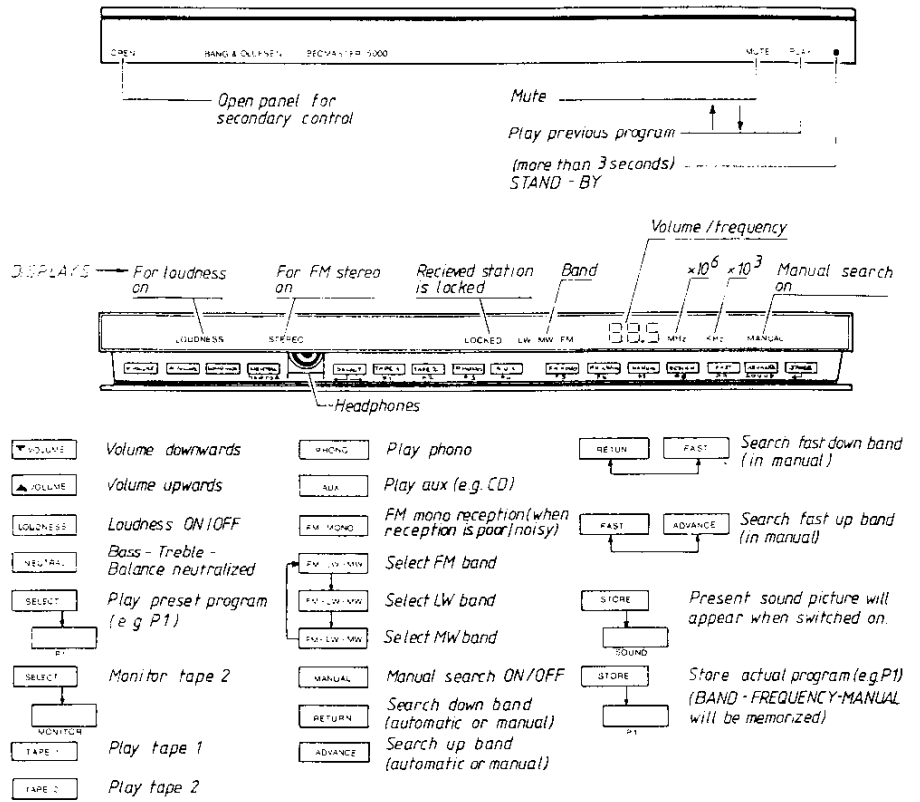 OPEN BANG & OLUFSEN BEOMASTER 5000 MUTE PLAY
Open panel for
secondary control
Mute
Play previous program
(more than 3 seconds)
STAND - BY
Volume / frequency
DISPLAYS
For loudness
on
For FM stereo
on
Recieved station
is locked
Band
×10⁶ ×10³
Manual search
on
LOUDNESS STEREO LOCKED LW MW FM MHz KHz MANUAL
Headphones
▼ VOLUME Volume downwards
▲ VOLUME Volume upwards
LOUDNESS Loudness ON/OFF
NEUTRAL Bass - Treble -
Balance neutralized
SELECT Play preset program
(e g P1)
P1
SELECT Monitor tape 2
MONITOR
TAPE 1 Play tape 1
TAPE 2 Play tape 2
PHONO Play phono
AUX Play aux (e.g. CD)
FM MONO FM mono reception (when
reception is poor/noisy)
FM-LW-MW Select FM band
FM-LW-MW Select LW band
FM-LW-MW Select MW band
MANUAL Manual search ON/OFF
RETURN Search down band
(automatic or manual)
ADVANCE Search up band
(automatic or manual)
RETUN FAST Search fast down band
(in manual)
FAST ADVANCE Search fast up band
(in manual)
STORE Present sound picture will
appear when switched on.
SOUND
STORE Store actual program (e.g P1)
(BAND - FREQUENCY-MANUAL
will be memorized)
P1